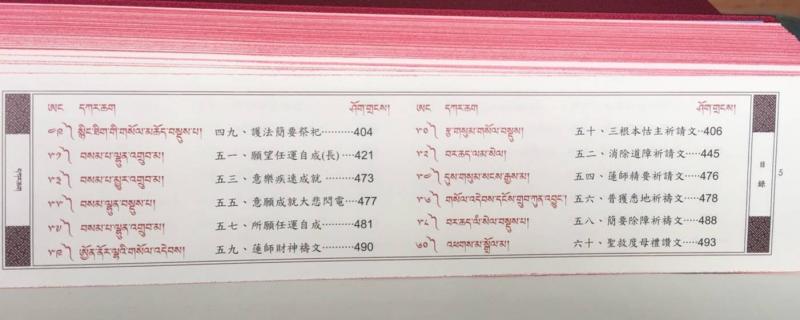 ཨང དཀར་ཆག ཤོག་གྲངས། ཨང དཀར་ཆག ཤོག་གྲངས།
༤༩༽ སྙིང་ཐིག་གི་གསོལ་མཆོད་བསྡུས་པ། 四九、護法簡要祭祀··········404 ༥༠༽ རྩ་གསུམ་གསོལ་བསྡུས། 五十、三根本怙主祈請文··406
༥༡༽ བསམ་པ་ལྷུན་འགྲུབ་མ། 五一、願望任運自成(長)····421 ༥༢༽ བར་ཆད་ལམ་སེལ། 五二、消除道障祈請文·····445
༥༣༽ བསམ་པ་མྱུར་འགྲུབ་མ། 五三、意樂疾速成就 ········473 ༥༤༽ དུས་གསུམ་སངས་རྒྱས་མ། 五四、蓮師精要祈請文·····476
༥༥༽ བསམ་ལྷུན་བསྡུས་པ། 五五、意願成就大悲閃電···477 ༥༦༽ གསོལ་འདེབས་དངོས་གྲུབ་ཀུན་འབྱུང་། 五六、普獲悉地祈禱文·····478
༥༧༽ བསམ་པ་ལྷུན་འགྲུབ་མ། 五七、所願任運自成········481 ༥༨༽ བར་ཆད་ལམ་སེལ་བསྡུས་པ། 五八、簡要除障祈禱文·····488
༥༩༽ ཨོྱན་ནོར་ལྷའི་གསོལ་འདེབས། 五九、蓮師財神禱文········490 ༦༠༽ འཕགས་མ་སྒྲོལ་མ། 六十、聖救度母禮讚文·····493
དཀར་ཆག
目錄
5